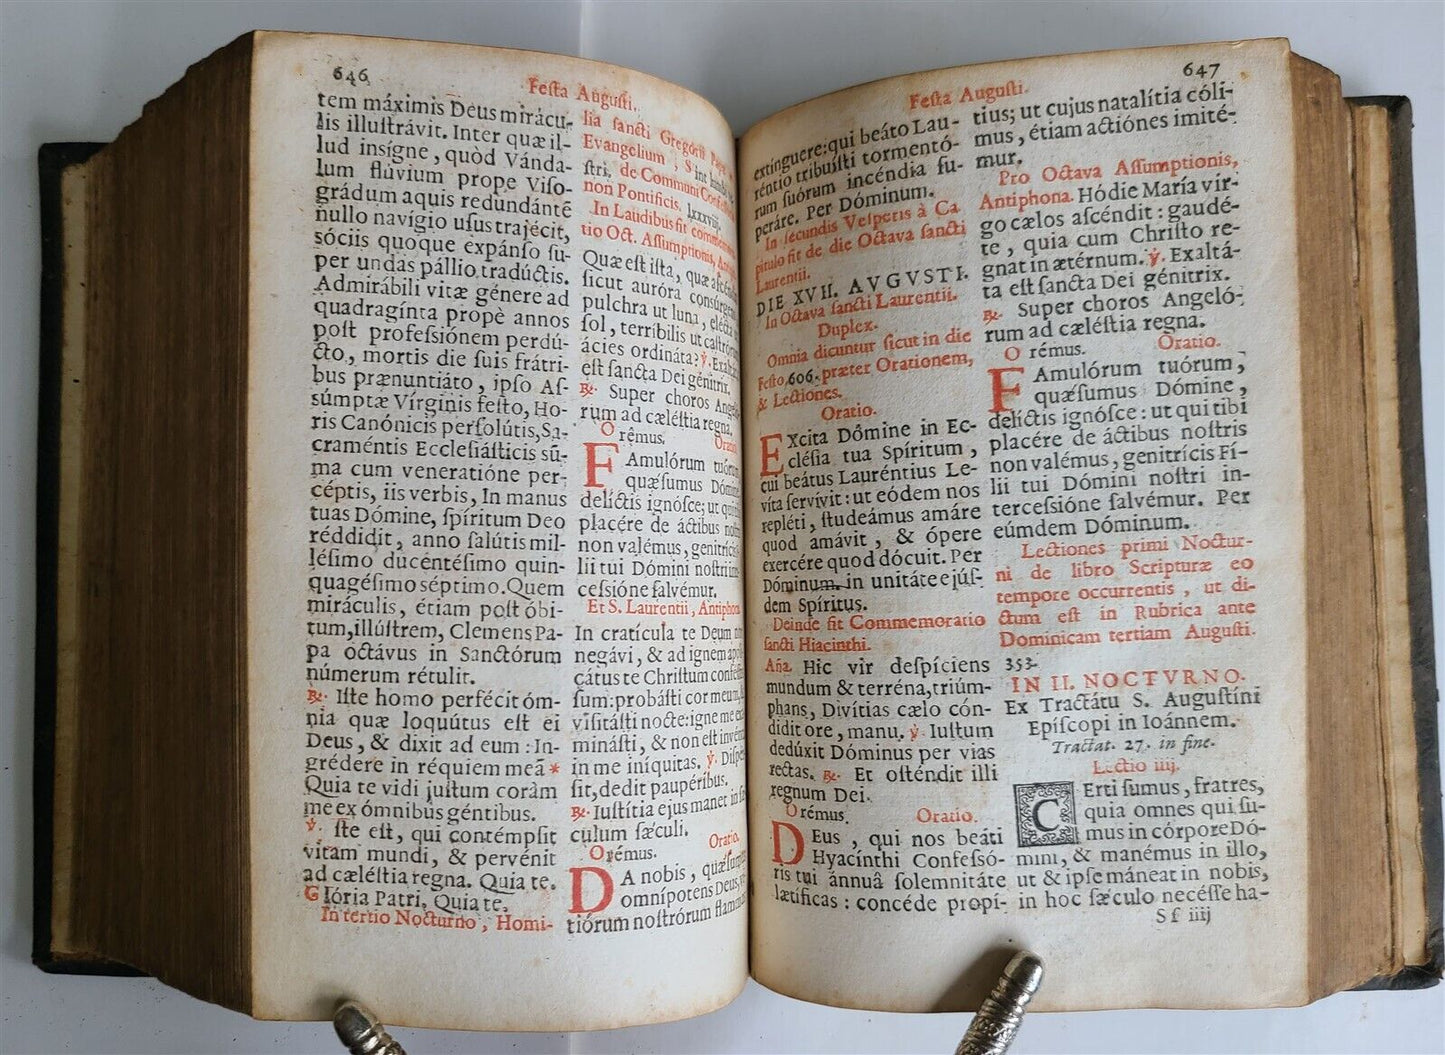 646
Festa Augusti.
tem máximis Deus mirácu-
lis illustrávit. Inter quæ il-
lud insígne, quòd Vánda-
lum flúvium prope Viso-
grádum aquis redundántē
nullo navígio usus trajécit,
sóciis quoque expánso su-
per undas pállio tradúctis.
Admirábili vitæ génere ad
quadragínta propè annos
post professiónem perdú-
cto, mortis die suis frátri-
bus prænuntiáto, ipso As-
súmptæ Vírginis festo, Ho-
ris Canónicis persolútis, Sa-
craméntis Ecclesiásticis sū-
ma cum veneratióne per-
céptis, iis verbis, In manus
tuas Dómine, spíritum Deo
réddidit, anno salútis mil-
lésimo ducentésimo quin-
quagésimo séptimo. Quem
miráculis, étiam post óbi-
tum, illústrem, Clemens Pa-
pa octávus in Sanctórum
númerum rétulit.
℟. Iste homo perfécit óm-
nia quæ loquútus est ei
Deus, & dixit ad eum: In-
grédere in réquiem meā *
Quia te vidi justum corām
me ex ómnibus géntibus.
℣. Iste est, qui contémpsit
vitam mundi, & pervénit
ad cæléstia regna. Quia te.
Glória Patri, Quia te.
In tertio Nocturno, Homi-
lia sancti Gregórii Papæ
Evangelium, Sint lumbi
stri, de Communi Confess
non Pontificis. lxxxviij.
In Laudibus fit commemo
tio Oct. Assumptionis,
Quæ est ista, quæ ascé
sicut auróra consúrgens
pulchra ut luna, elécta
sol, terríbilis ut castrórum
ácies ordináta? ℣. Exaltá
est sancta Dei génitrix.
℟. Super choros Angeló
rum ad cæléstia regna.
Orēmus. Oratio.
FAmulórum tuórum
quæsumus Dómine
delíctis ignósce; ut qui
placére de áctibus nost
non valémus, genitrícis
lii tui Dómini nostri in
cessióne salvémur.
Et S. Laurentii, Antiphona.
In cratícula te Deum non
negávi, & ad ignem ap
cátus te Christum conféss
sum: probásti cor meum, &
visitásti nocte: igne me ex
minásti, & non est invén
in me iníquitas. ℣. Dispér
sit, dedit paupéribus.
℟. Iustítia ejus manet in sæ
culum sæculi.
Orémus. Oratio.
DA nobis, quæsumus
omnípotens Deus,
tiórum nostrórum flammas
647
Festa Augusti.
extinguere: qui beáto Lau-
réntio tribuísti tormentó-
rum suórum incéndia su-
peráre. Per Dóminum.
In secundis Vesperis à Ca
pitulo fit de die Octava sancti
Laurentii.
DIE XVII. AVGVSTI.
In Octava sancti Laurentii.
Duplex.
Omnia dicuntur sicut in die
Festo, 606. præter Orationem,
& Lectiones.
Oratio.
EXcita Dómine in Ec-
clésia tua Spíritum,
cui beátus Lauréntius Le-
víta servívit: ut eódem nos
repléti, studeámus amáre
quod amávit, & ópere
exercére quod dócuit. Per
Dóminum. in unitáte ejús-
dem Spíritus.
Deinde fit Commemoratio
sancti Hiacinthi.
Aña. Hic vir despíciens
mundum & terréna, triúm-
phans, Divítias cælo cón-
didit ore, manu. ℣. Iustum
dedúxit Dóminus per vias
rectas. ℟. Et osténdit illi
regnum Dei.
Orémus. Oratio.
DEus, qui nos beáti
Hyacínthi Confessó-
ris tui ánnuâ solemnitáte
lætíficas: concéde propí-
tius; ut cujus natalítia cóli-
mus, étiam actiónes imité-
mur.
Pro Octava Assumptionis,
Antiphona. Hódie María vir-
go cælos ascéndit: gaudé-
te, quia cum Christo re-
gnat in ætérnum. ℣. Exaltá-
ta est sancta Dei génitrix.
℟. Super choros Angeló-
rum ad cæléstia regna.
Orémus. Oratio.
FAmulórum tuórum,
quæsumus Dómine,
delíctis ignósce: ut qui tibi
placére de áctibus nostris
non valémus, genitrícis Fí-
lii tui Dómini nostri in-
tercessióne salvémur. Per
eúmdem Dóminum.
Lectiones primi Noctur-
ni de libro Scripturæ eo
tempore occurrentis, ut di-
ctum est in Rubrica ante
Dominicam tertiam Augusti.
353.
IN II. NOCTVRNO.
Ex Tractátu S. Augustíni
Epíscopi in Ioánnem.
Tractat. 27. in fine.
Lectio iiij.
CErti sumus, fratres,
quia omnes qui su-
mus in córpore Dó-
mini, & manémus in illo,
ut & ipse máneat in nobis,
in hoc sæculo necésse ha-
Sf iiij